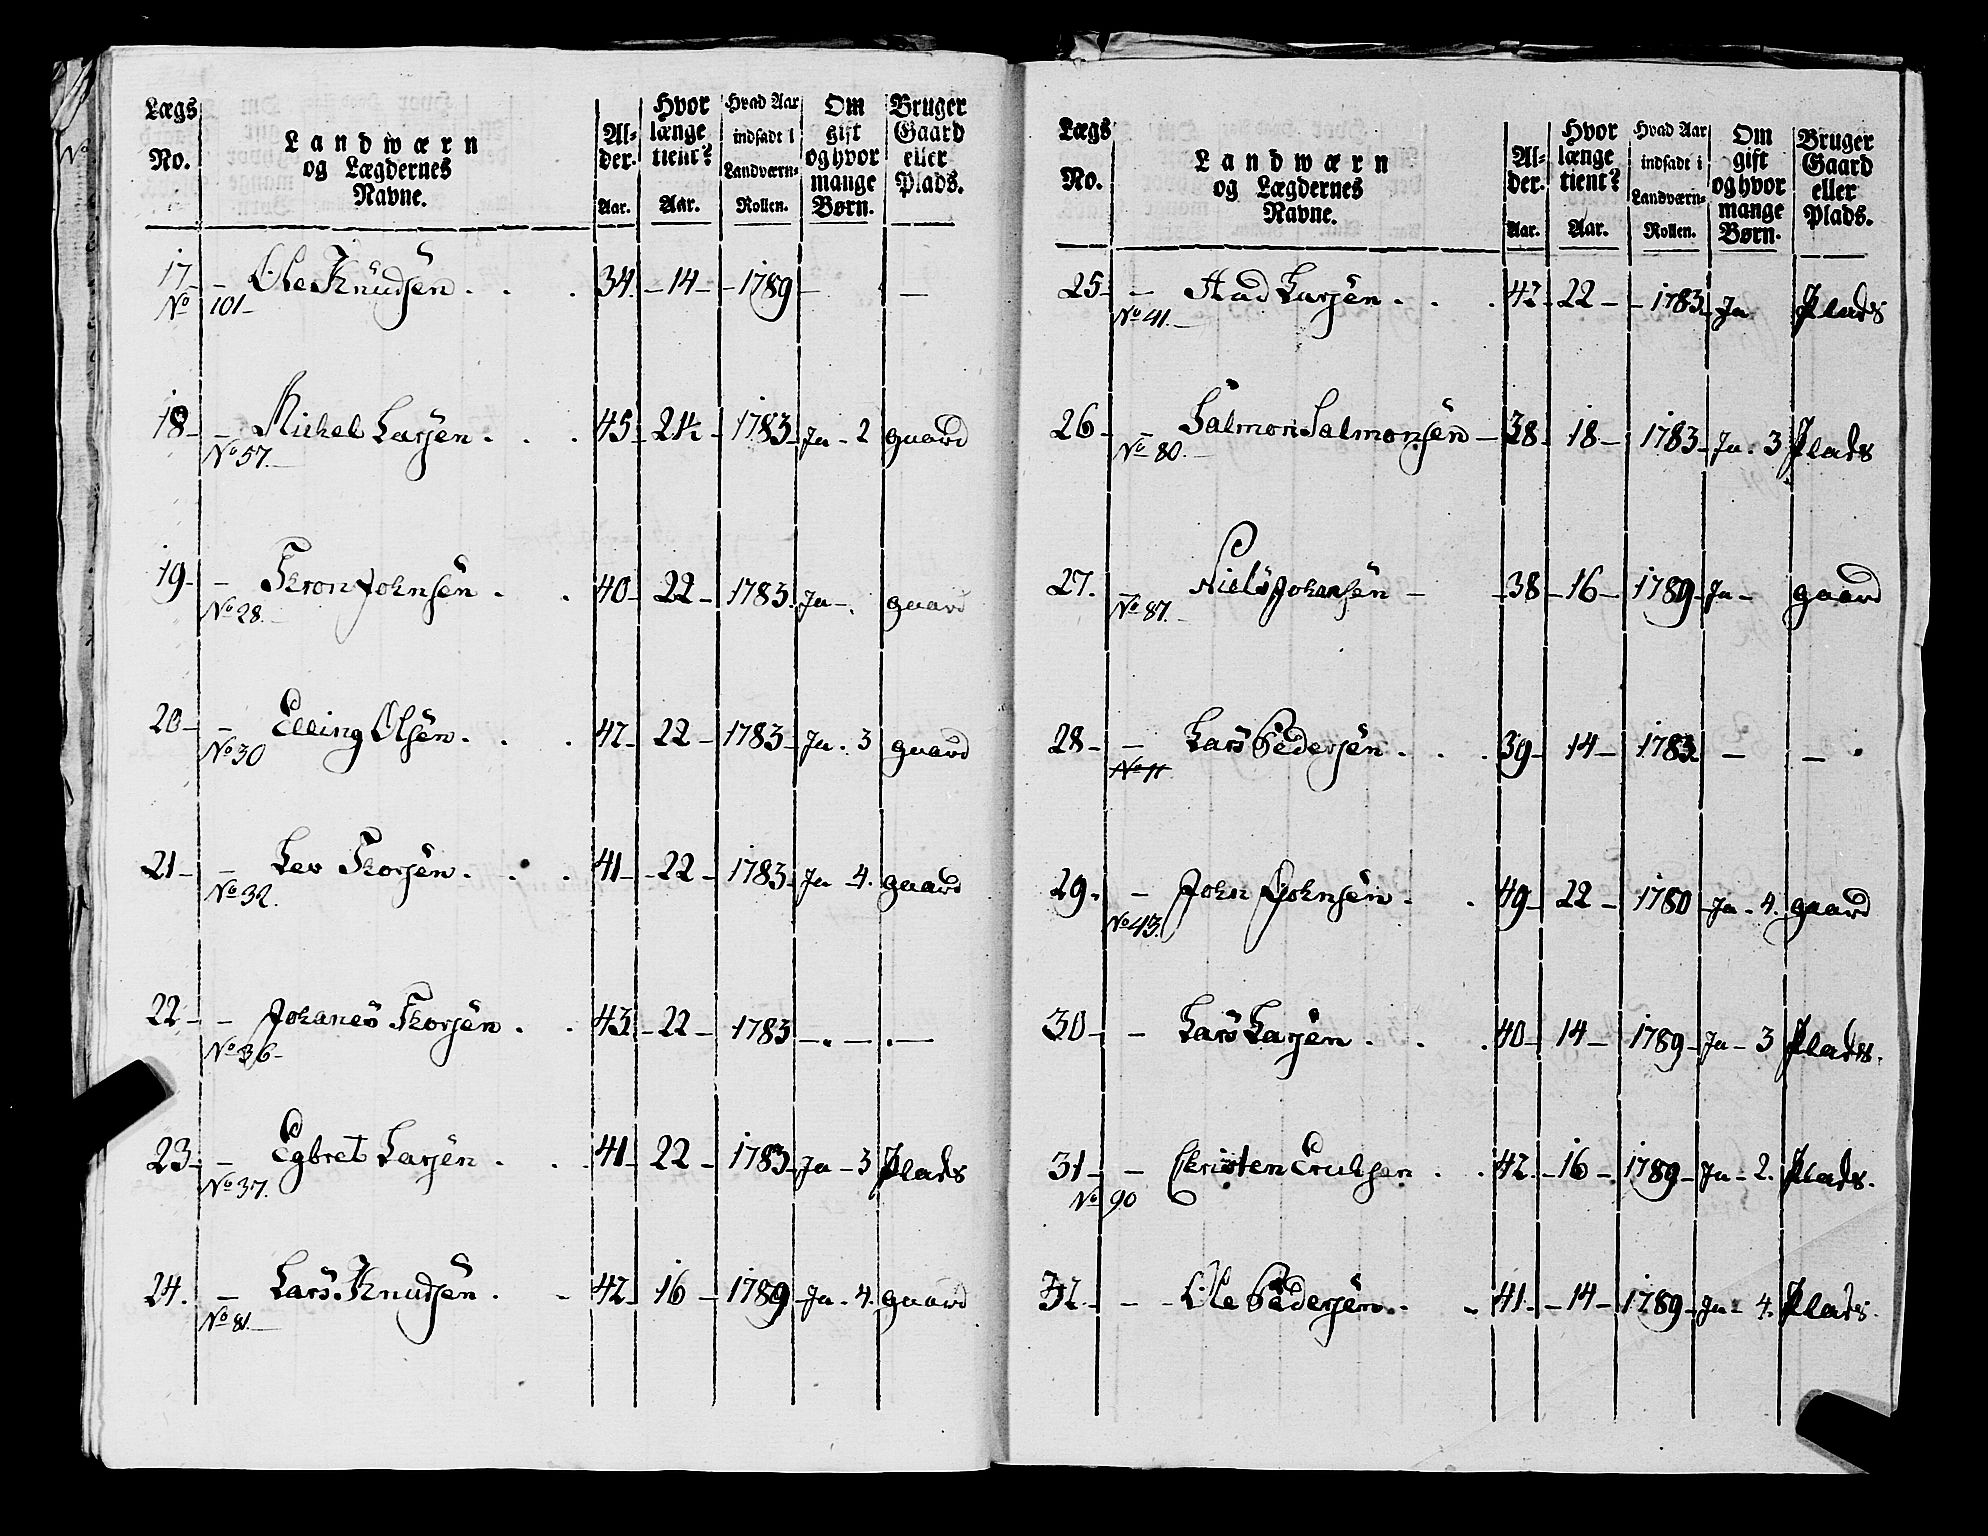 Lægs No. | Landwærn og Lægdernes Navne. | Al-der. Aar. | Hvor længe tient? Aar. | Hvad Aar indsadt i Landværn-Rollen. | Om gift og hvor mange Børn. | Bruger Gaard eller Plads.
17 - Ole Knudsen . . . 34. - 14 - - 1789 - —
No 101 -
18 - - Michel Larsen . . . 45 - 24 - 1783 - Ja - 2 gaard
No 57. -
19 - - John Johnsen . . 40 - 22 - 1783. Ja - . gaard
No 28. -
20 - - Elling Olsen . . . 42 - 22 - 1783 - Ja . 3 gaard
No 30
21 - - Lev Thorsen . . . 41 - 22 - 1783 - Ja - 4. gaard
No 32.
22 - - Johanes Thorsen . . 43 - 22 - 1783 - . - . —
No 36 -
23 - - Egbret Larsen . . . 41 - 22 - 1783 - Ja - 3 Plads
No 37.
24. - Lars Knudsen . - 42 - 16 - 1789 - Ja - 4. gaard
No 81. -
Lægs No. | Landwærn og Lægdernes Navne. | Al-der. Aar. | Hvor længe tient? Aar. | Hvad Aar indsadt i Landværn-Rollen. | Om gift og hvor mange Børn. | Bruger Gaard eller Plads.
25 - - Aad Larsen . . . 42 - 22 - - 1783 - Ja Plads
No 41. -
26 - - Salmon Salmonsen - 38 - 18 - 1783 - Ja - 3 Plads
No 80. -
27. - Niels Johansen - - 38 - 16 - 1789 - Ja - gaard
No 87. -
28 - - Lars Pedersen . . . 39 - 14 - 1783 - - .
No 11
29 - - John Johnsen . . 49 - 22 - 1780 - Ja - 4. gaard
No 43.
30 - - Lars Larsen . . . 40 - 14 - 1789 - Ja - 3 Plads.
31 - - Christen Erichsen . . 42. - 16 - 1789 - Ja - 2. Plads.
No 90
32. - - Ole Pedersen . . - 41 - - 14 - 1789 - Ja - 4. Plads.